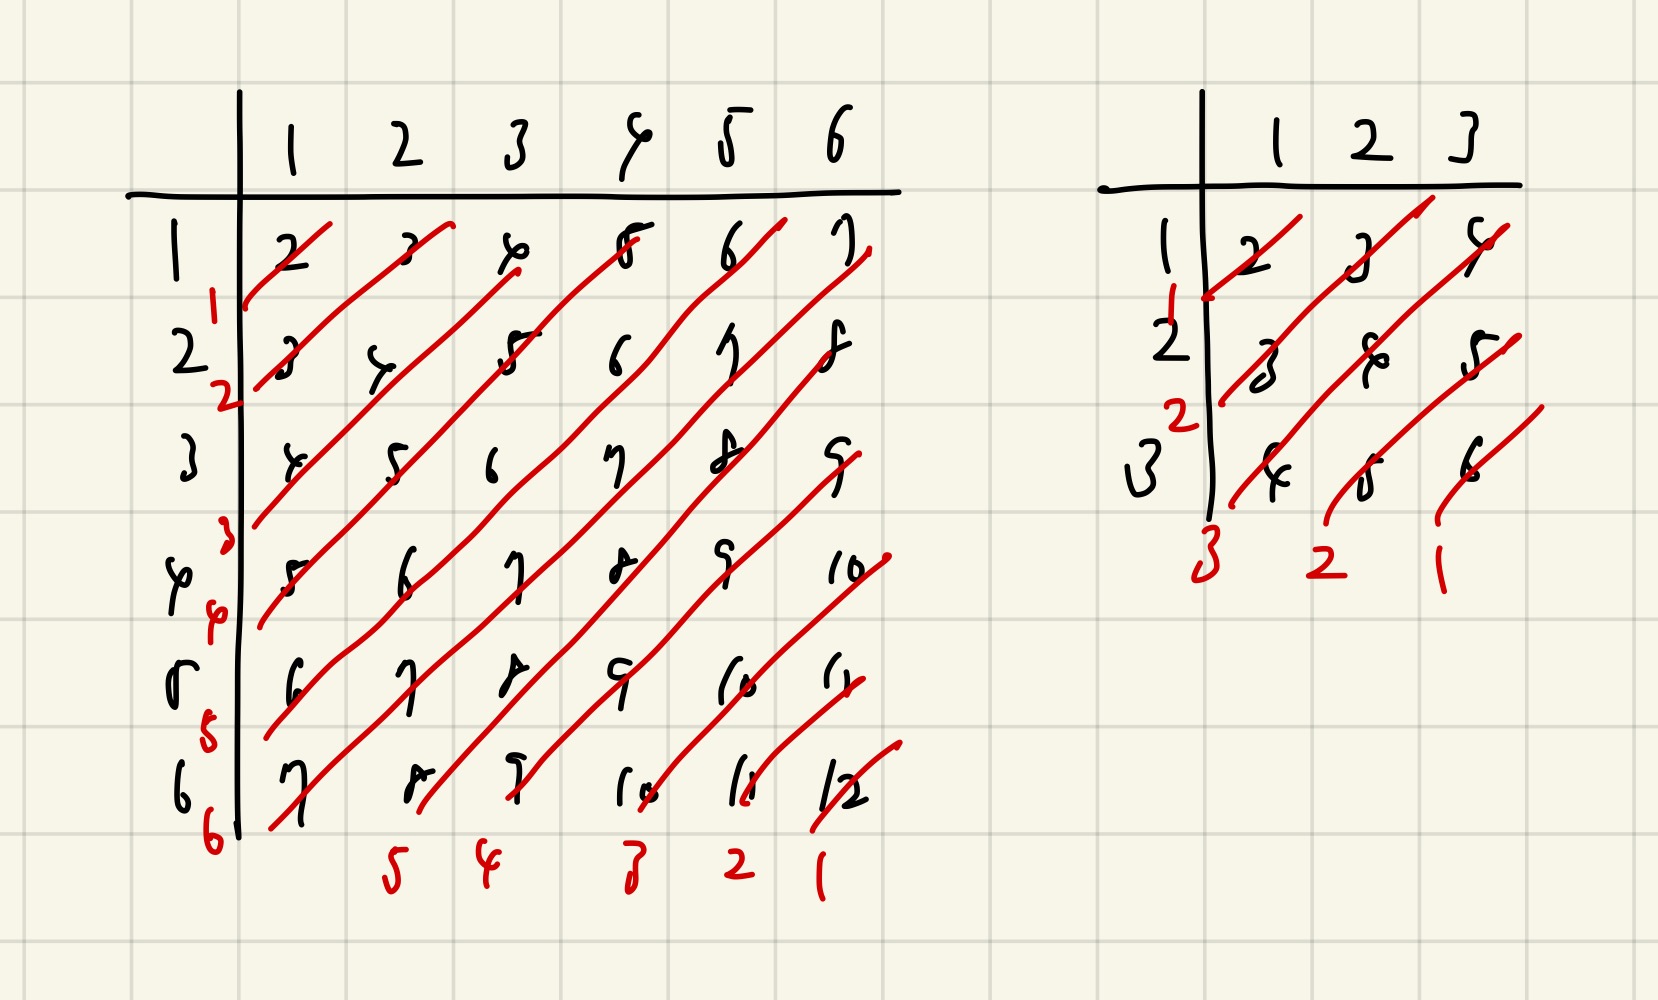 1 2 3 4 5 6
1 2 3 4 5 6 7
1
2 3 4 5 6 7 8
2
3 4 5 6 7 8 9
3
4 5 6 7 8 9 10
4
5 6 7 8 9 10 11
5
6 7 8 9 10 11 12
6
5 4 3 2 1
1 2 3
1 2 3 4
1
2 3 4 5
2
3 4 5 6
3 2 1